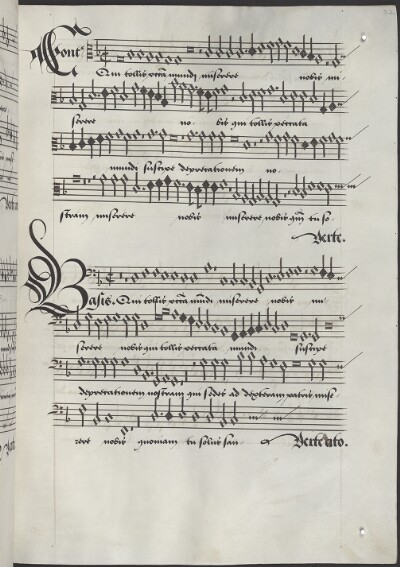 Cont
Qui tollis pctā mundi miserere nobis mi
serere nobis qui tollis peccata
mundi suscipe deprecationem no
stram miserere nobis miserere nobis qm̄ tu so
Verte.
Basis. Qui tollis pctā mūdi miserere nobis mi
serere nobis qui tollis peccata mundi suscipe
deprecationem nostram qui sedes ad dexteram patris mise
rere nobis quoniam tu solus san
Vertento.